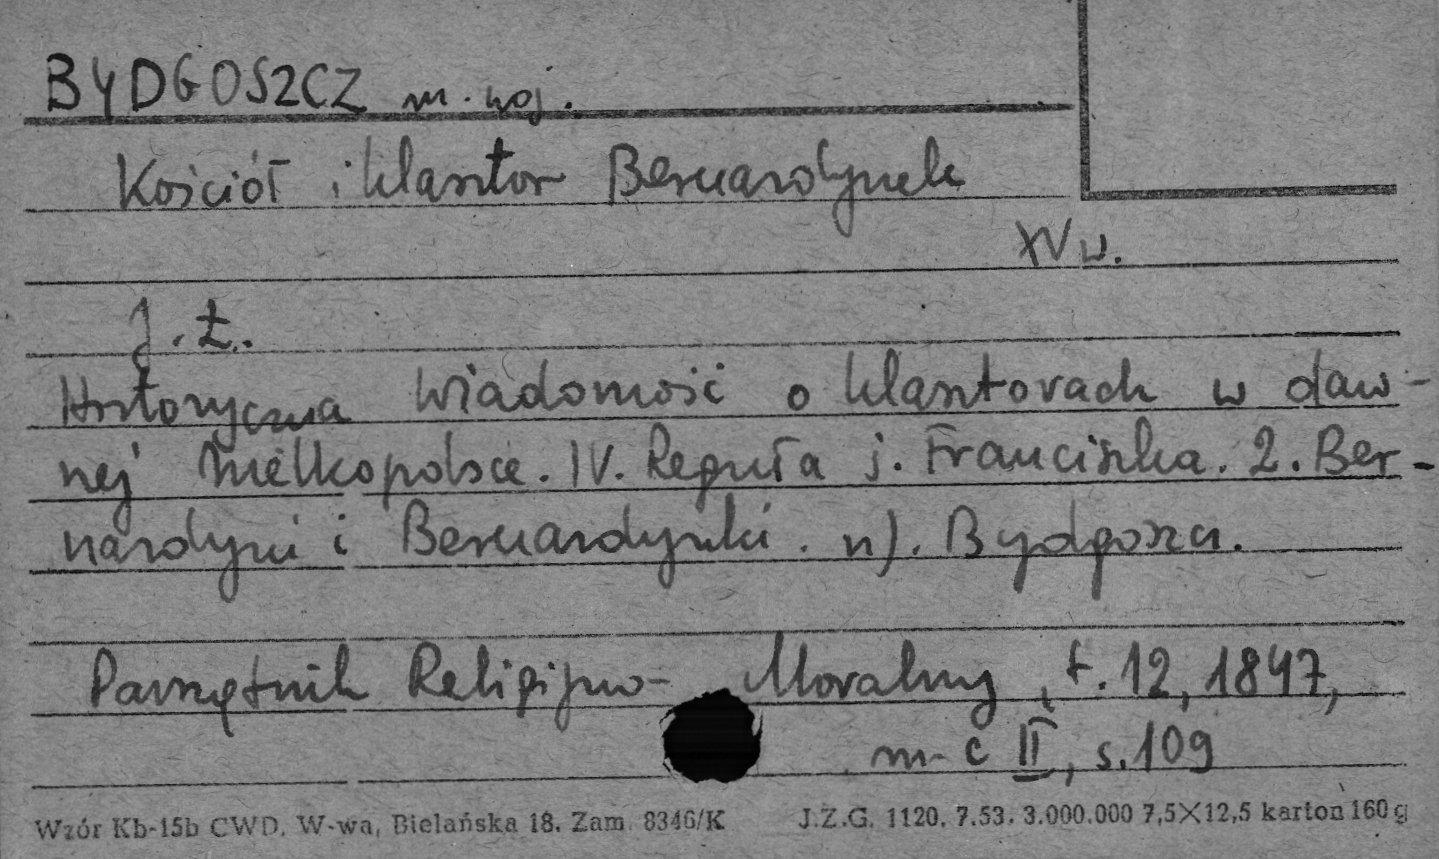 BYDGOSZCZ m. woj.
Kościół i klasztor Bernardynek
XV w.
J. Ł.
Historyczna wiadomość o klasztorach w daw-
nej Wielkopolsce. IV. Reguła ś. Franciszka. 2. Ber-
nardyni i Bernardynki. n). Bydgoszcz.
Pamiętnik Religijno-Moralny, t. 12, 1847,
m-c II, s. 109
Wzór Kb-15b CWD, W-wa, Bielańska 18. Zam. 8346/K J.Z.G. 1120. 7.53. 3.000.000 7,5×12,5 karton 160 g